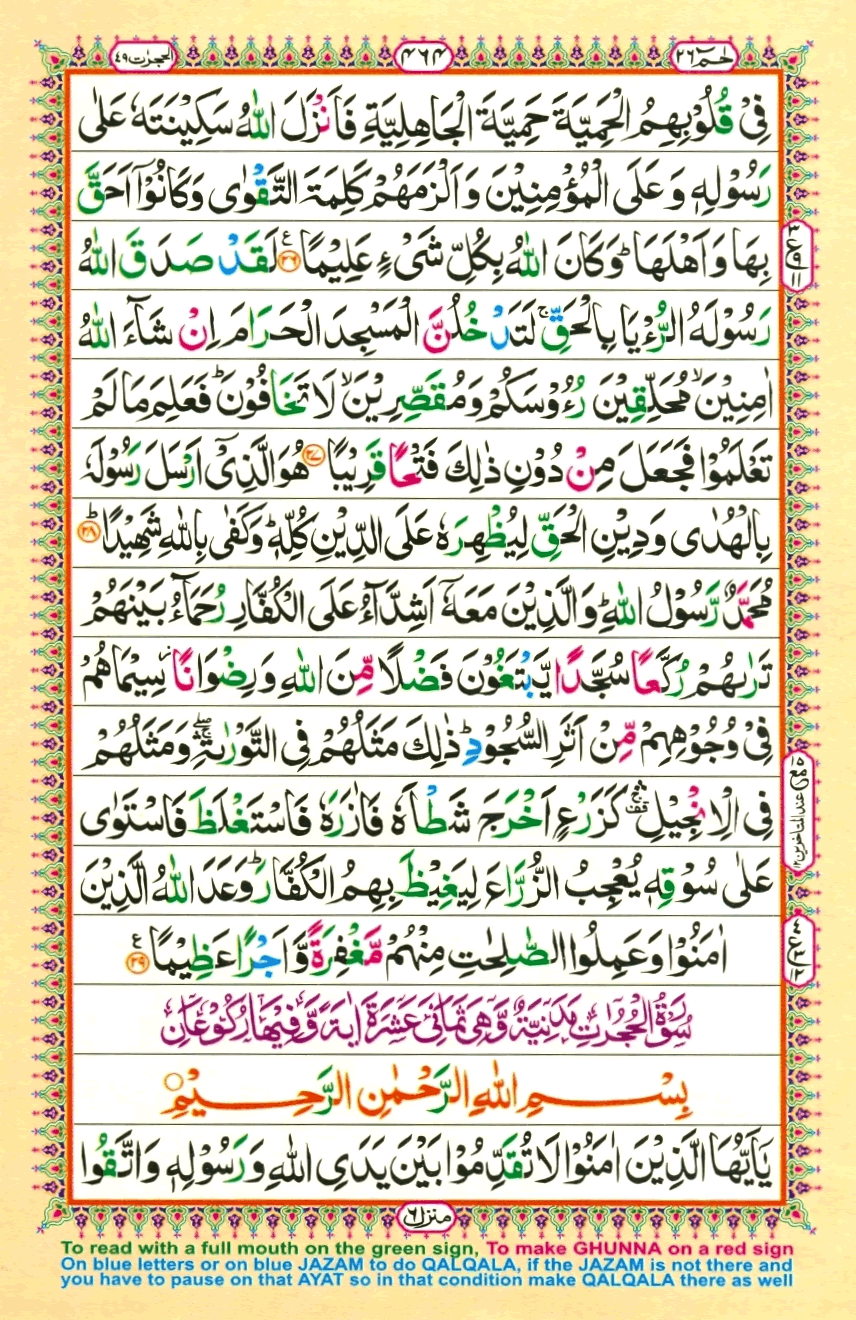 حٰمٓ ٢٦
٤٦٤
الحجرٰت ٤٩
فِیْ قُلُوْبِهِمُ الْحَمِیَّةَ حَمِیَّةَ الْجَاهِلِیَّةِ فَاَنْزَلَ اللّٰهُ سَكِیْنَتَهٗ عَلٰی
رَسُوْلِهٖ وَعَلَی الْمُؤْمِنِیْنَ وَاَلْزَمَهُمْ كَلِمَةَ التَّقْوٰی وَكَانُوْۤا اَحَقَّ
بِهَا وَاَهْلَهَا ؕ وَكَانَ اللّٰهُ بِكُلِّ شَیْءٍ عَلِیْمًا ﴿۲۶﴾ ع لَقَدْ صَدَقَ اللّٰهُ
رَسُوْلَهُ الرُّءْیَا بِالْحَقِّ ۚ لَتَدْخُلُنَّ الْمَسْجِدَ الْحَرَامَ اِنْ شَآءَ اللّٰهُ
اٰمِنِیْنَ ۙ مُحَلِّقِیْنَ رُءُوْسَكُمْ وَمُقَصِّرِیْنَ ۙ لَا تَخَافُوْنَ ؕ فَعَلِمَ مَا لَمْ
تَعْلَمُوْا فَجَعَلَ مِنْ دُوْنِ ذٰلِكَ فَتْحًا قَرِیْبًا ﴿۲۷﴾ هُوَ الَّذِیْۤ اَرْسَلَ رَسُوْلَهٗ
بِالْهُدٰی وَدِیْنِ الْحَقِّ لِیُظْهِرَهٗ عَلَی الدِّیْنِ كُلِّهٖ ؕ وَكَفٰی بِاللّٰهِ شَهِیْدًا ؕ ﴿۲۸﴾
مُحَمَّدٌ رَّسُوْلُ اللّٰهِ ؕ وَالَّذِیْنَ مَعَهٗۤ اَشِدَّآءُ عَلَی الْكُفَّارِ رُحَمَآءُ بَیْنَهُمْ
تَرٰىهُمْ رُكَّعًا سُجَّدًا یَّبْتَغُوْنَ فَضْلًا مِّنَ اللّٰهِ وَرِضْوَانًا ؗ سِیْمَاهُمْ
فِیْ وُجُوْهِهِمْ مِّنْ اَثَرِ السُّجُوْدِ ؕ ذٰلِكَ مَثَلُهُمْ فِی التَّوْرٰىةِ ۛۖۚ وَمَثَلُهُمْ
فِی الْاِنْجِیْلِ ۛ۫ۚ كَزَرْعٍ اَخْرَجَ شَطْاَهٗ فَاٰزَرَهٗ فَاسْتَغْلَظَ فَاسْتَوٰی
عَلٰی سُوْقِهٖ یُعْجِبُ الزُّرَّاعَ لِیَغِیْظَ بِهِمُ الْكُفَّارَ ؕ وَعَدَ اللّٰهُ الَّذِیْنَ
اٰمَنُوْا وَعَمِلُوا الصّٰلِحٰتِ مِنْهُمْ مَّغْفِرَةً وَّاَجْرًا عَظِیْمًا ﴿۲۹﴾ ع
سُوْرَةُ الْحُجُرٰتِ مَدَنِیَّةٌ وَّهِیَ ثَمَانِیَ عَشْرَةَ اٰیَةً وَّفِیْهَا رُكُوْعَانِ
بِسْمِ اللّٰهِ الرَّحْمٰنِ الرَّحِیْمِ
یٰۤاَیُّهَا الَّذِیْنَ اٰمَنُوْا لَا تُقَدِّمُوْا بَیْنَ یَدَیِ اللّٰهِ وَرَسُوْلِهٖ وَاتَّقُوا
منزل ٦
To read with a full mouth on the green sign, To make GHUNNA on a red sign
On blue letters or on blue JAZAM to do QALQALA, if the JAZAM is not there and
you have to pause on that AYAT so in that condition make QALQALA there as well